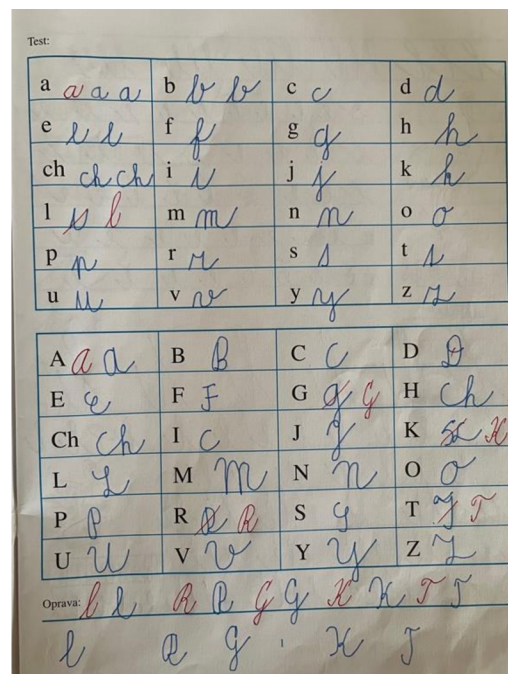 Test:
a a a a b b b c c d d
e e e f f g g h h
ch ch ch i i j j k k
l s l m m n n o o
p p r r s s t s
u u v v y y z z
A a a B B C C D D
E E F F G g G H Ch
Ch Ch I C J J K K
L L M M N N O O
P P R R R S S T J T
U U V V Y Y Z Z
Oprava: l l R R G G K K T T
l R G K T